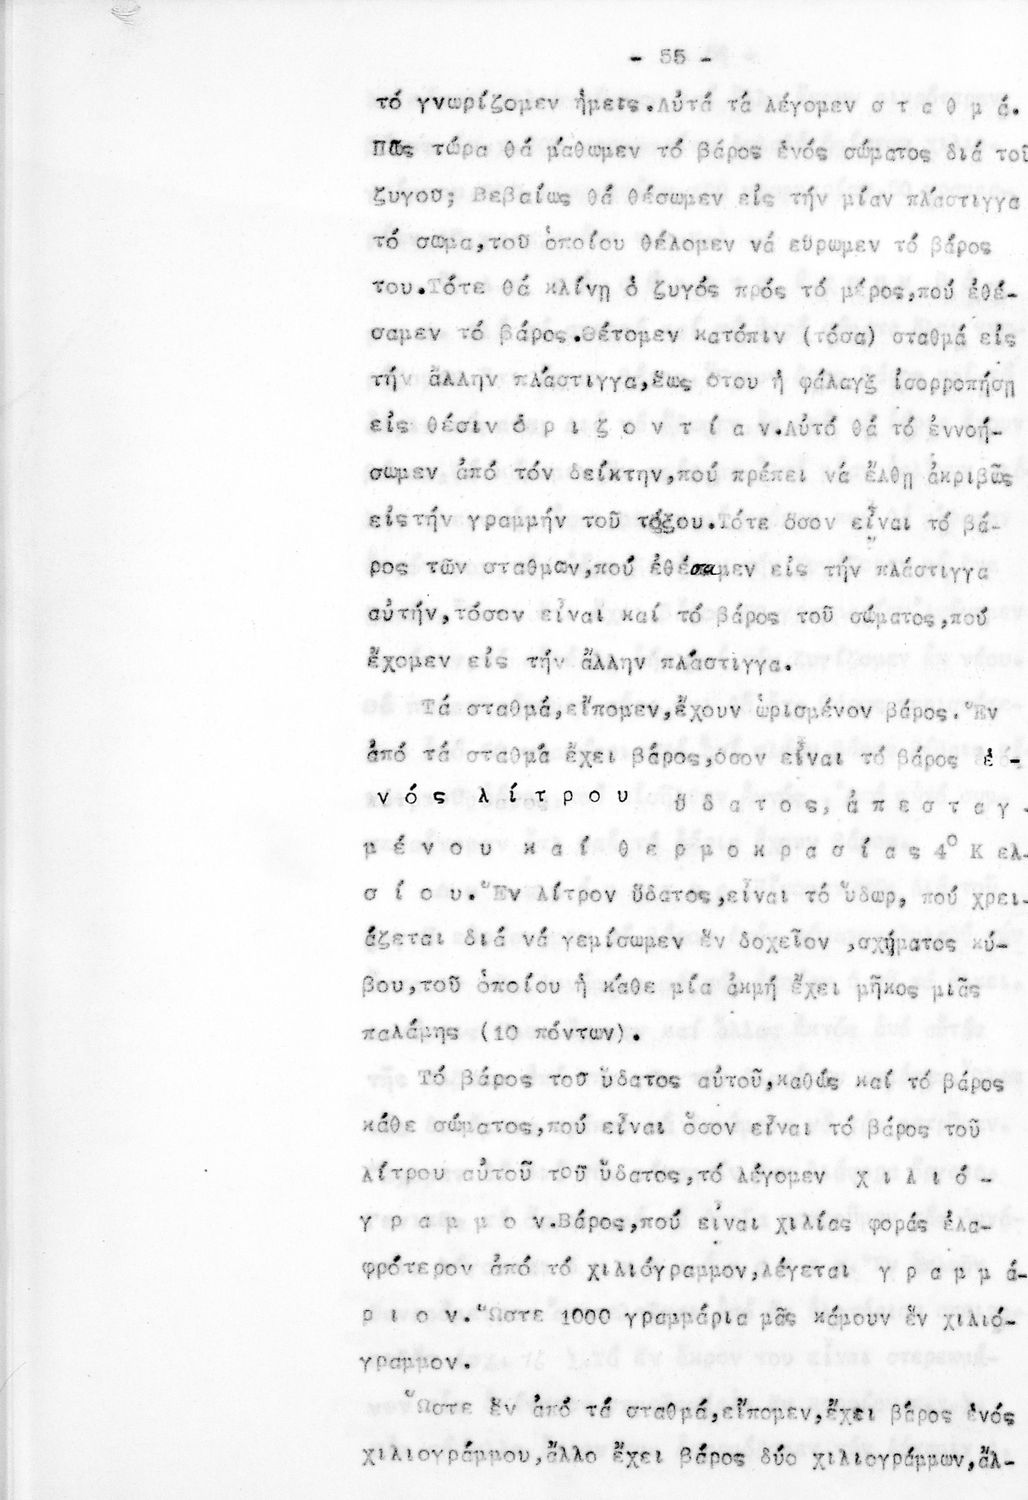 - 55 -
τό γνωρίζομεν ἡμεῖς.Αὐτά τά λέγομεν σ τ α θ μ ά.
Πῶς τώρα θά μάθωμεν τό βάρος ἑνός σώματος διά τοῦ
ζυγοῦ; Βεβαίως θά θέσωμεν εἰς τήν μίαν πλάστιγγα
τό σῶμα,τοῦ ὁποίου θέλομεν νά εὕρωμεν τό βάρος
του.Τότε θά κλίνῃ ὁ ζυγός πρός τό μέρος,πού ἐθέ-
σαμεν τό βάρος.Θέτομεν κατόπιν (τόσα) σταθμά εἰς
τήν ἄλλην πλάστιγγα,ἕως ὅτου ἡ φάλαγξ ἰσορροπήσῃ
εἰς θέσιν ὁ ρ ι ζ ο ν τ ί α ν.Αὐτό θά τό ἐννοή-
σωμεν ἀπό τόν δείκτην,πού πρέπει νά ἔλθῃ ἀκριβῶς
εἰς τήν γραμμήν τοῦ τόξου.Τότε ὅσον εἶναι τό βά-
ρος τῶν σταθμῶν,πού ἐθέσαμεν εἰς τήν πλάστιγγα
αὐτήν,τόσον εἶναι καί τό βάρος τοῦ σώματος,πού
ἔχομεν εἰς τήν ἄλλην πλάστιγγα.
Τά σταθμά,εἴπομεν,ἔχουν ὡρισμένον βάρος.Ἕν
ἀπό τά σταθμά ἔχει βάρος,ὅσον εἶναι τό βάρος ἑ -
ν ό ς λ ί τ ρ ο υ ὕ δ α τ ο ς, ἀ π ε σ τ α γ -
μ έ ν ο υ κ α ί θ ε ρ μ ο κ ρ α σ ί α ς 4° Κ ελ-
σ ί ο υ.Ἕν λίτρον ὕδατος,εἶναι τό ὕδωρ, πού χρει-
άζεται διά νά γεμίσωμεν ἕν δοχεῖον ,σχήματος κύ-
βου,τοῦ ὁποίου ἡ κάθε μία ἀκμή ἔχει μῆκος μιᾶς
παλάμης (10 πόντων).
Τό βάρος τοῦ ὕδατος αὐτοῦ,καθώς καί τό βάρος
κάθε σώματος,πού εἶναι ὅσον εἶναι τό βάρος τοῦ
λίτρου αὐτοῦ τοῦ ὕδατος,τό λέγομεν χ ι λ ι ό -
γ ρ α μ μ ο ν.Βάρος,πού εἶναι χιλίας φοράς ἐλα-
φρότερον ἀπό τό χιλιόγραμμον,λέγεται γ ρ α μ μ ά-
ρ ι ο ν.Ὥστε 1000 γραμμάρια μᾶς κάμουν ἕν χιλιό-
γραμμον.
Ὥστε ἕν ἀπό τά σταθμά,εἴπομεν,ἔχει βάρος ἑνός
χιλιογράμμου,ἄλλο ἔχει βάρος δύο χιλιογράμμων,ἄλ-